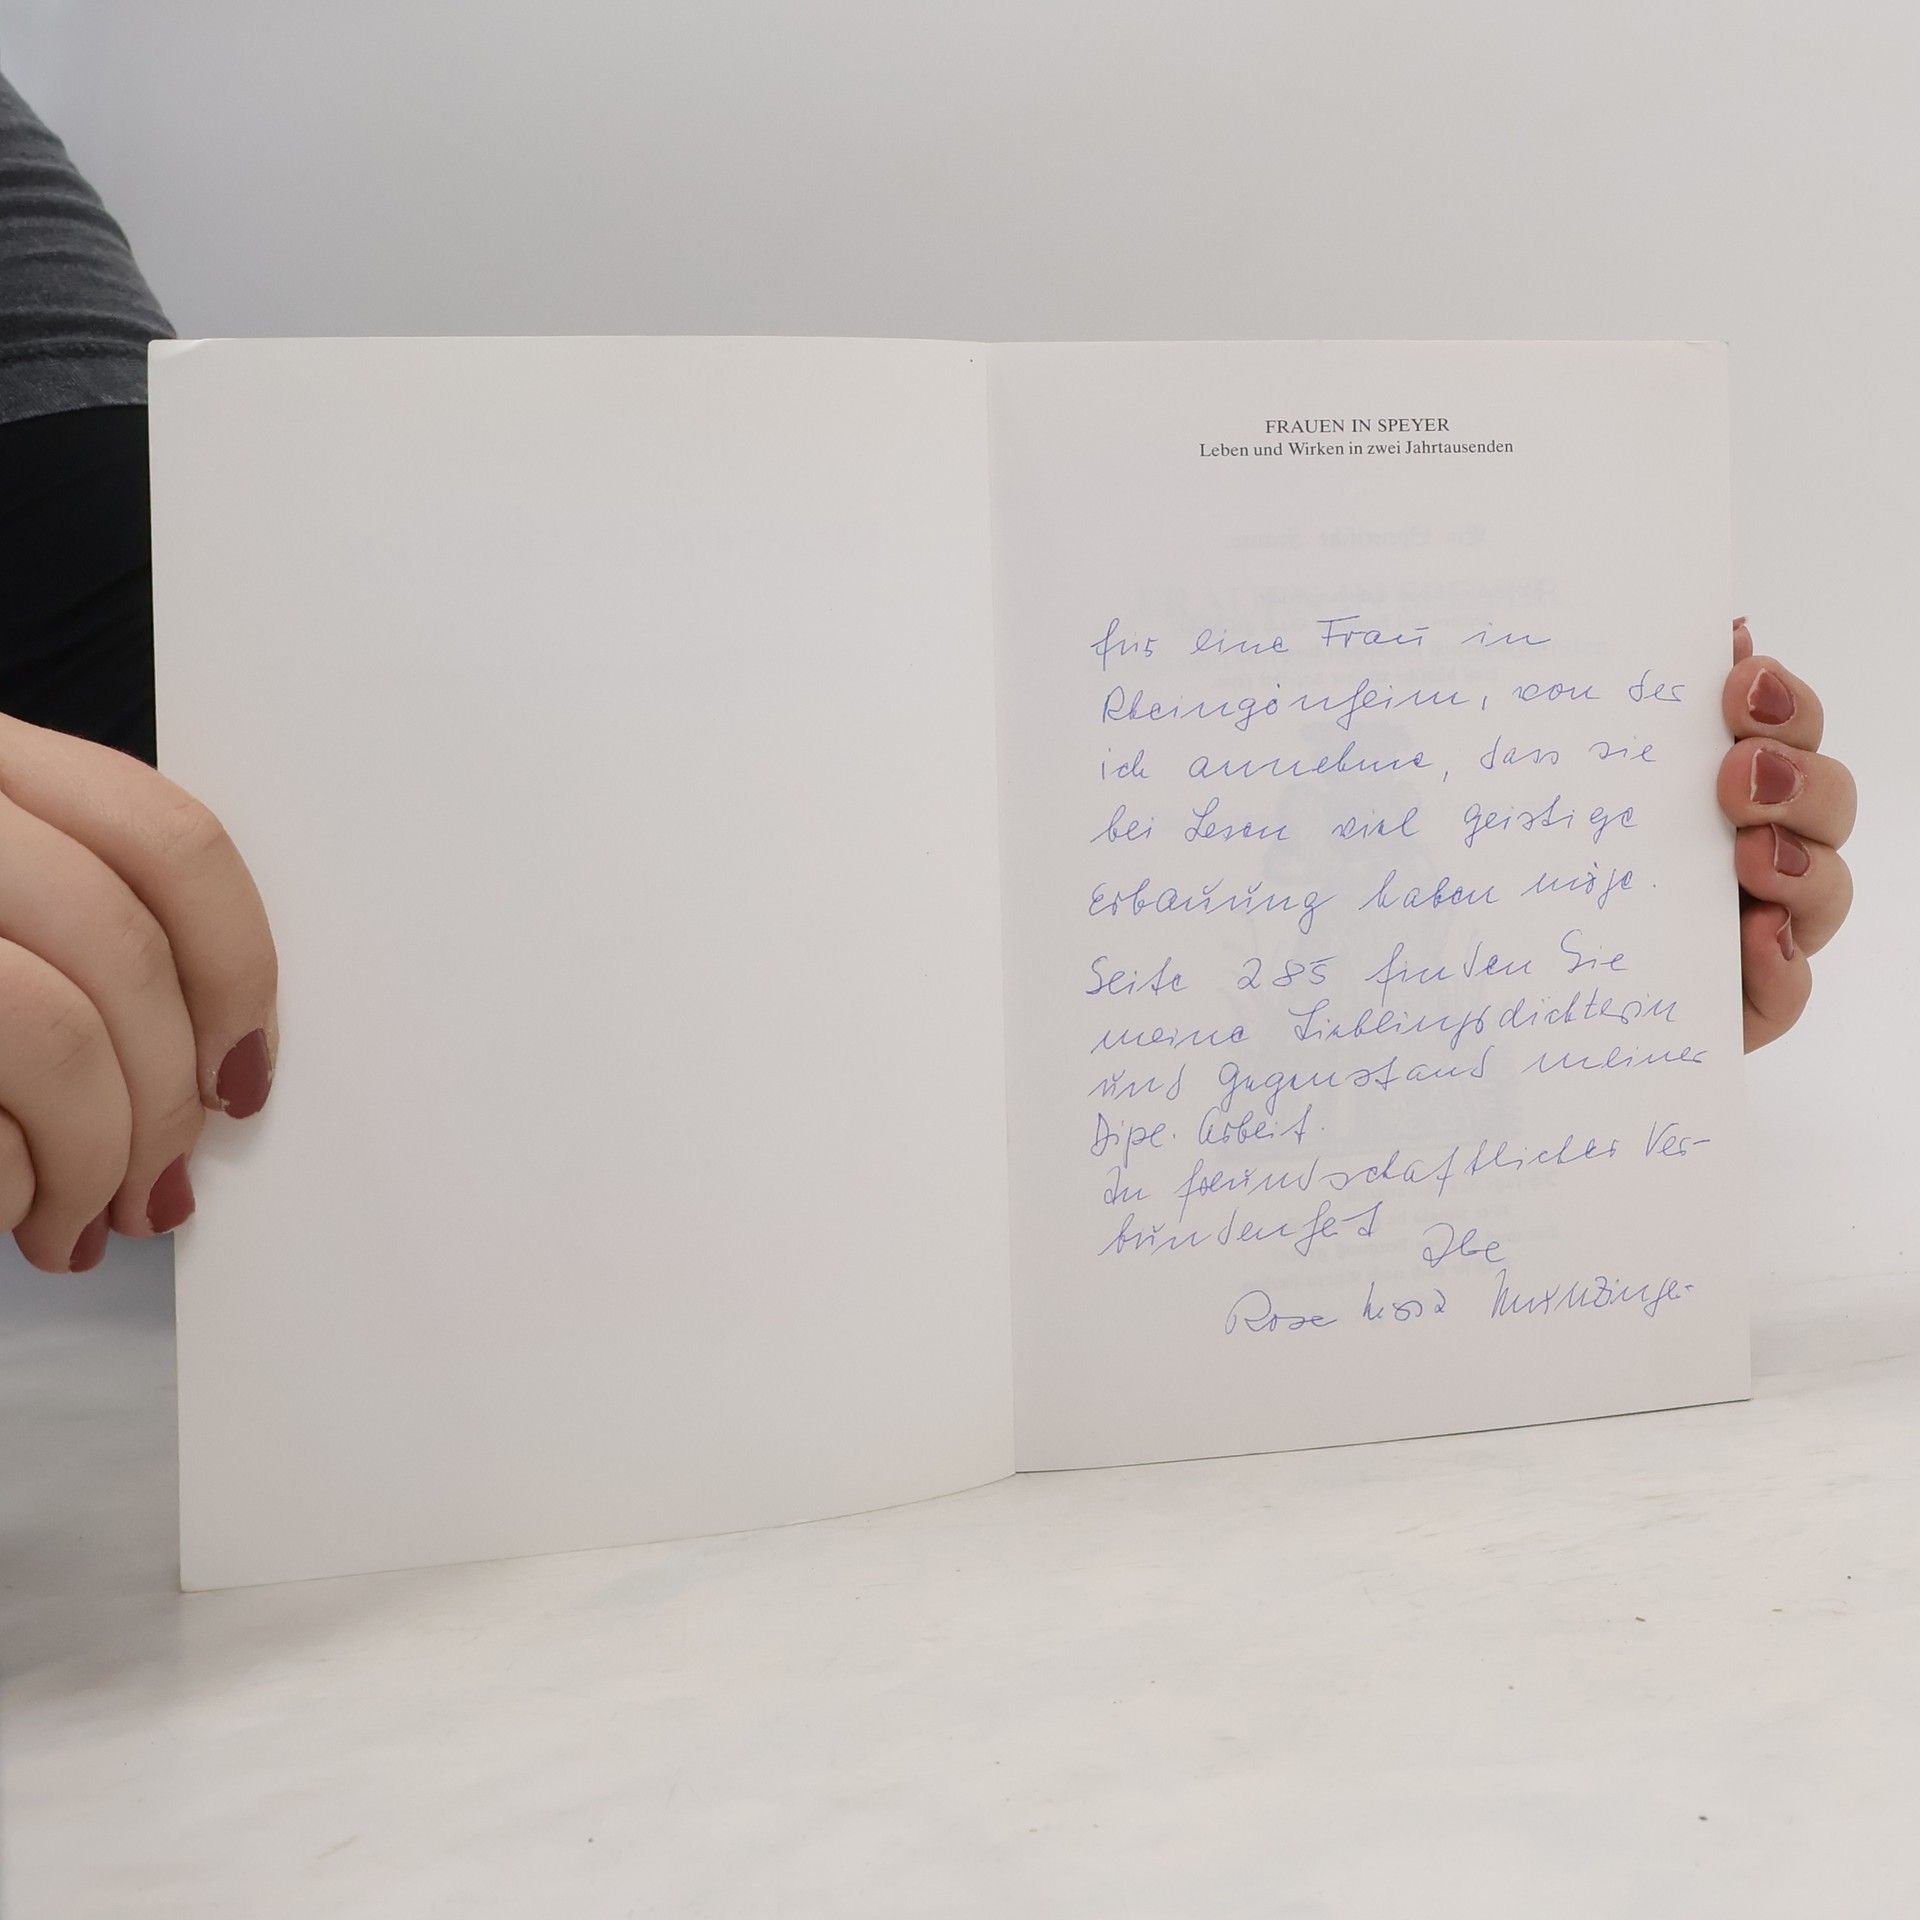 FRAUEN IN SPEYER
Leben und Wirken in zwei Jahrtausenden
für eine Frau in
Rheingönheim, von der
ich annehme, dass sie
bei Lesen viel geistige
Erbauung haben möge.
Seite 285 finden Sie
meine Lieblingsdichterin
und Gegenstand meiner
Dipl. Arbeit.
In freundschaftlicher Ver-
bundenheit Ihe
Rose